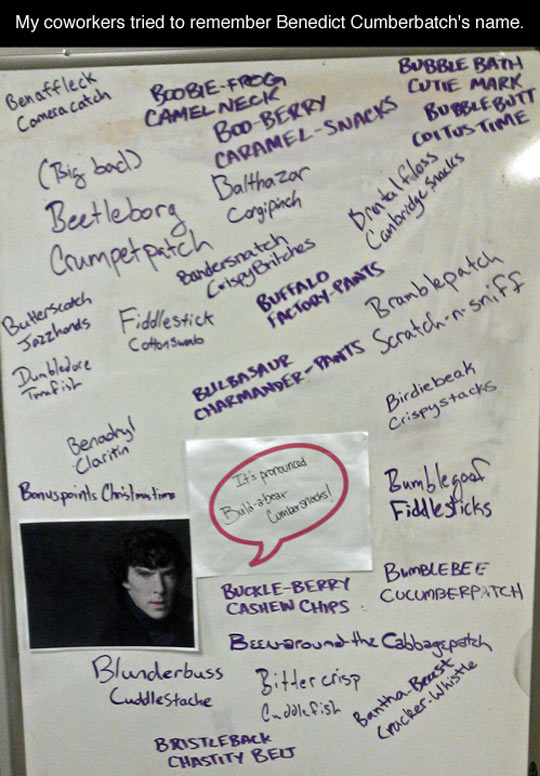 My coworkers tried to remember Benedict Cumberbatch's name.
Benaffleck
Cameracatch
BOOBIE-FROG
CAMEL NECK
BUBBLE BATH
CUTIE MARK
BOO-BERRY
CARAMEL-SNACKS
BUBBLEBUTT
COITUS TIME
(Big bad)
Balthazar
Corgipinch
Dental floss
Cambridge snacks
Beetleborg
Crumpetpatch
Bandersnatch
CrispyBritches
BUFFALO
FACTORY-PANTS
Bramblepatch
Scratch-n-sniff
Butterscotch
Jazzhands
Fiddlestick
Cottonswab
Dumbledore
BULBASAUR
CHARMANDER-PANTS
Birdiebeak
Crispystacks
Benadryl
Claritin
Bonuspoints Christmastime
It's pronounced
Build-a-bear
Cumbersnacks!
Bumblegoof
Fiddlesticks
BUCKLE-BERRY
CASHEW CHIPS
BUMBLEBEE
CUCUMBERPATCH
Been-around-the Cabbagepatch
Blunderbuss
Cuddlestache
Bittercrisp
Cuddlefish
Bantha-Beast
Cracker-Whistle
BRISTLEBACK
CHASTITY BELT